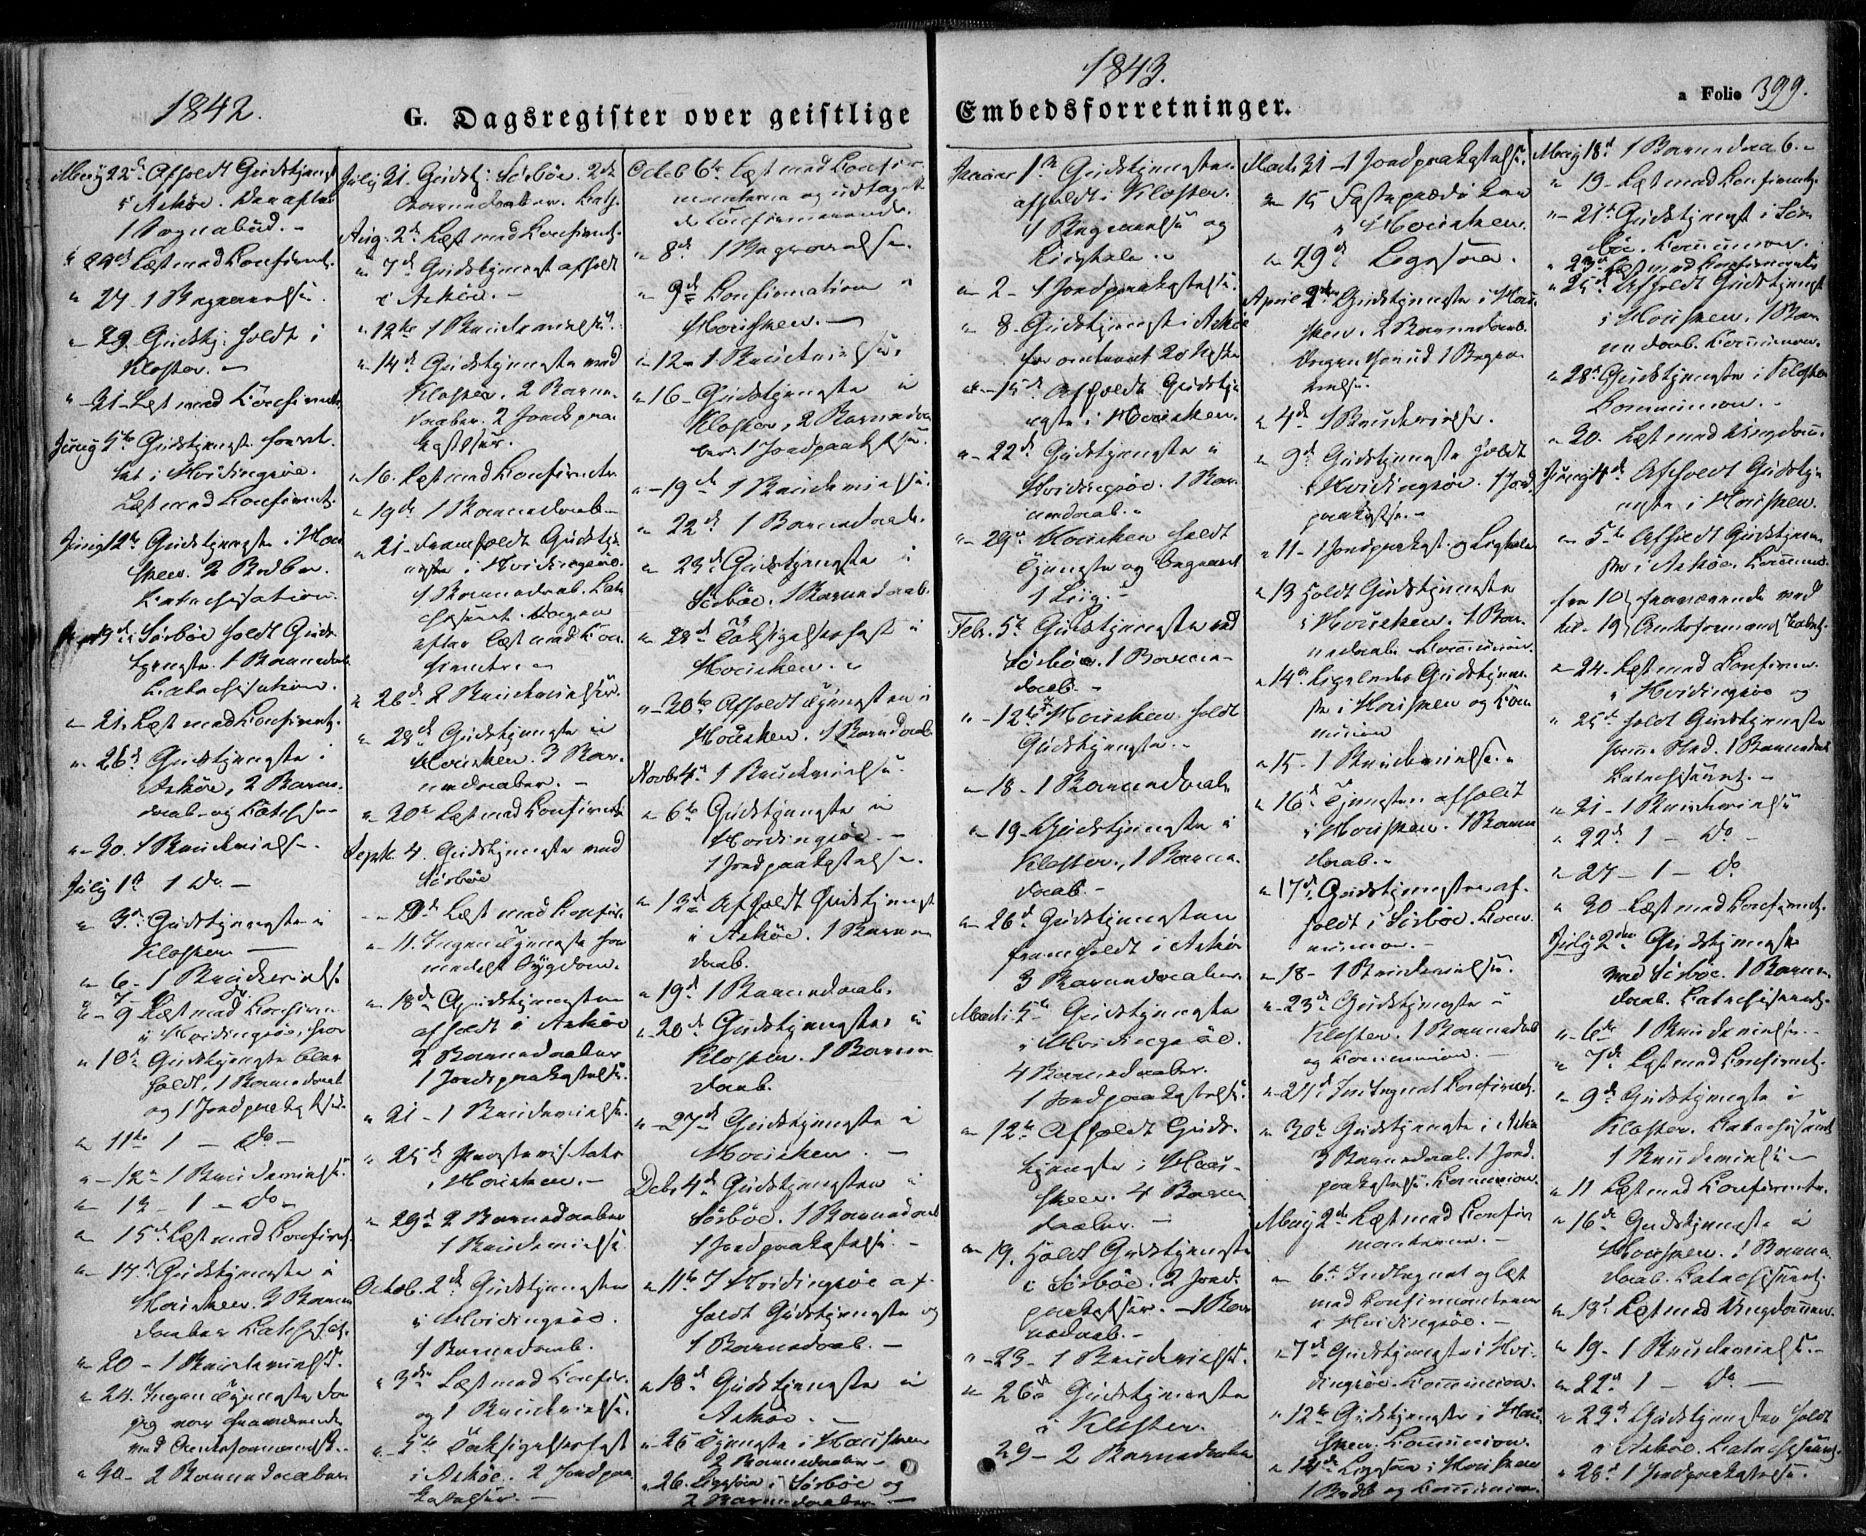 1842.
G. Dagsregister over geistlige
Mai 22de Afholdt Gudstjenest
i Askøe. Derefter
1 Sognebud. -
1 Begravelse.
29. Gudstj: holdt i
Kloster. -
31 Læst med Confirmt.
Juny 5te Gudstjeneste forret-
tet i Hvidingsøe.
Læst med Confirmt.
Juny 12te Gudstjeneste i Hau-
sken. 2 Brdbr.
Katechisation.
19de i Sørbøe holdt Guds-
tjeneste. 1 Barnedaab
Catechisation.
21. Læst med Confirmt.
26de Gudstjeneste i
Askøe, 2 Barne-
daab og Catechs-
30. 1 Brudevielse.
July 1st 1 Do -
3de Gudstjeneste i
Kloster -
6 - 1 Brudevielse
9 - Læst med Confirm
i Hvidingsøe, hvor
10de Gudstjeneste blev
holdt, 1 Barnedaab
og 1 Jordpaakastelse.
11te 1 - Do -
12te 1 Brudevielse.
13 - 1 - Do -
15de Læst med Confirmt.
17de Gudstjeneste i
Hausken. 3 Barne
daaber Catechisat.
20 - 1 Brudevielse.
24. Ingen Tjeneste da
jeg var fraværende
med Amtsformandsk.
30 - 2 Barnedaaber
July 31. Gudstj: Sørbøe. 2de
Barnedaaber. Cats.
Aug. 2de Læst med Confirmt.
7de Gudstjenest afholdt
i Askøe. -
12te 1 Brudevielse.
14de Gudstjeneste ved
Kloster, 2 Barne-
daaber. 2 Jordpaa-
kastelser.
16. Læst med Confirmter
19de 1 Barnedaab -
21 - Fremholdt Gudstje-
neste i Hvidingsøe.
1 Barnedaab. Cate-
chiseret. Dagen
efter læst med Con-
firmter. -
26de 2 Brudevielser.
28de Gudstjeneste i
Hausken. 3 Bar-
nedaaber. -
30te Læst med Confirmt.
Septb. 4. Gudstjeneste ved
Sørbøe
Læst med Confir.
11. Ingen Tjeneste for
medelst Sygdom.
18de Gudstjeneste
afholdt i Askøe
2 Barnedaaber
1 Jordpaakastelse.
21 - 1 Brudevielse
25de Provstevisitats
i Hausken. -
29de 2 Barnedaaber
1 Brudevielse
Octob. 2de Gudstjeneste
i Hvidingsøe.
1 Barnedaab.
3die Læst med Confir.
og 1 Brudevielse.
5te Taksigelsesfest
i Askøe. 2 Jordpaa-
kastelser. -
Octob 6te Læst med Confir-
manterne og udtaget
de Confirmerende.
8de 1 Begravelse.
9de Confirmation i
Hausken. -
12 - 1 Brudevielse.
16 - Gudstjeneste i
Kloster, 2 Barnedaa-
ber. 1 Jordpaakastelse.
19de 1 Brudevielse.
22de 1 Barnedaab.
23de Gudstjeneste i
Sørbøe. 1 Barnedaab.
28de Taksigelsesfest i
Hausken.
30te Afholdt Tjenesten i
Hausken. 1 Barnedaab
Novb. 4de 1 Brudevielse.
6te Gudstjeneste i
Hvidingsøe -
1 Jordpaakastelse.
13de Afholdt Gudstjenest
i Askøe. 1 Barne-
daab.
19de 1 Barnedaab.
20de Gudstjeneste i
Kloster. 1 Barne
daab.
27de Gudstjeneste i
Hausken. -
Debr 4de Gudstjenesten i
Sørbøe. 1 Barnedaab
1 Jordpaakastelse. -
11te I Hvidingsøe af-
holdt Gudstjeneste og
1 Barnedaab. -
18de Gudstjeneste i
Askøe. -
25 Tjeneste i Hausken
2 Barnedaaber -
26. Ligesaa i Sørbøe og
2 Barnedaaber -
1843.
Embedsforretninger.
a Folio 399.
Januar 1ste Gudstjenesten
afholdt i Kloster.
1 Begravelse og
Liigtale.
2 - 1 Jordpaakastelse.
8. Gudstjenest i Askøe
for omtrent 20 Msker
15de Afholdt Gudstje-
neste i Hausken.
22de Gudstjeneste i
Hvidingsøe. 1 Bar-
nedaab.
29de Hausken holdt
Tjeneste og begravet
1 Liig. -
Febr. 5te Gudstjeneste ved
Sørbøe. 1 Barne-
daab. -
12te Hausken holdt
Gudstjeneste.
18 - 1 Barnedaab
19 - Gudstjeneste i
Kloster, 1 Barne-
daab. -
26de Gudstjenesten
fremholdt i Askøe
3 Barnedaaber.
Marts 5te Gudstjeneste
i Hvidingsøe.
4 Barnedaaber.
1 Jordpaakastelse.
12te Afholdt Guds-
tjeneste i Hau-
sken. 4 Barne
daaber. -
19. Holdt Gudstjeneste
i Sørbøe. 2 Jord-
paakastelser. - 1 Bar-
nedaab. -
23 - 1 Brudevielse.
26de Gudstjeneste
i Kloster.
29 - 2 Barnedaaber
Marts 31 - 1 Jordpaakastelse.
15 Fasteprædiken
i Hausken.
29de Ligesaa.
April 2den Gudstjeneste i Hau-
sken. 2 Barnedaab.
Dagen forud 1 Begra-
velse.
4de 1 Brudevielse.
9de Gudstjeneste holdt
i Hvidingsøe. 1 Jord-
paakastse. -
11 - 1 Jordpaakast. og Ligtale
13 Holdt Gudstjeneste
i Hausken. 1 Bar-
nedaab. Communion.
14de Ligeledes Gudstjene-
ste i Hausken og Com-
munion
15 - 1 Brudevielse.
16de Tjenesten afholdt
i Hausken. 1 Barne
daab.
17de Gudstjeneste af-
holdt i Sørbøe. Com-
munion. -
18 - 1 Brudevielse.
23de Gudstjeneste i
Kloster. 1 Barnedaab
og Communion. -
24de Indtegnet Confirmt.
30te Gudstjeneste i Askøe
3 Barnedaab. 1 Jord-
paakastelse. Communion.
May 2de Læst med Confir
manterne. -
6te Indtegnet og læst
med Confirmanterne
i Hvidingsøe. -
7de Gudstjeneste i Hvi-
dingsøe. Communion.
12te Gudstjeneste i Hau-
sken. Communion.
14de Ligesaa i Hausken
1 Brdb og Communion.
May 18de 1 Barnedaab. -
19 - Læst med Confirmt.
21de Gudstjenest i Sør-
bøe. Communion.
23de Læst med Confirmante
25de Afholdt Gudstjenest
i Hausken. 1 Bar-
nedaab. Communion.
28de Gudstjeneste i Kloster
Communion. -
30. Læst med Ungdom.
Juny 4de Afholdt Gudstje-
neste i Hausken.
5te Afholdt Gudstjene-
ste i Askøe. Commun.
fra 10 fraværende ved
til 19 Amtsformandskabet.
24. Læst med Confirm.
i Hvidingsøe og
25de holdt Gudstjeneste
samme Sted. 1 Barnedaab
Catechiseret. -
21 - 1 Brudevielse
22de 1 - Do
27 - 1 - Do
30 Læst med Confirmt.
July 2den Gudstjeneste
ved Sørbøe. 1 Barne-
daab. Catechiseret.
6te 1 Brudevielse. -
7de Læst med Confirmt.
9de Gudstjeneste i
Kloster. Catechiseret
1 Brudevielse -
11 Læst med Confirmter.
16de Gudstjeneste i
Hausken. 1 Barne-
daab. Catechiseret.
18de Læst med Ungdommen.
19 - 1 Brudevielse. -
22de 1 - Do -
23de Gudstjenesten holdt
i Askøe. Catechiseret.
28de 1 Jordpaakastelse.